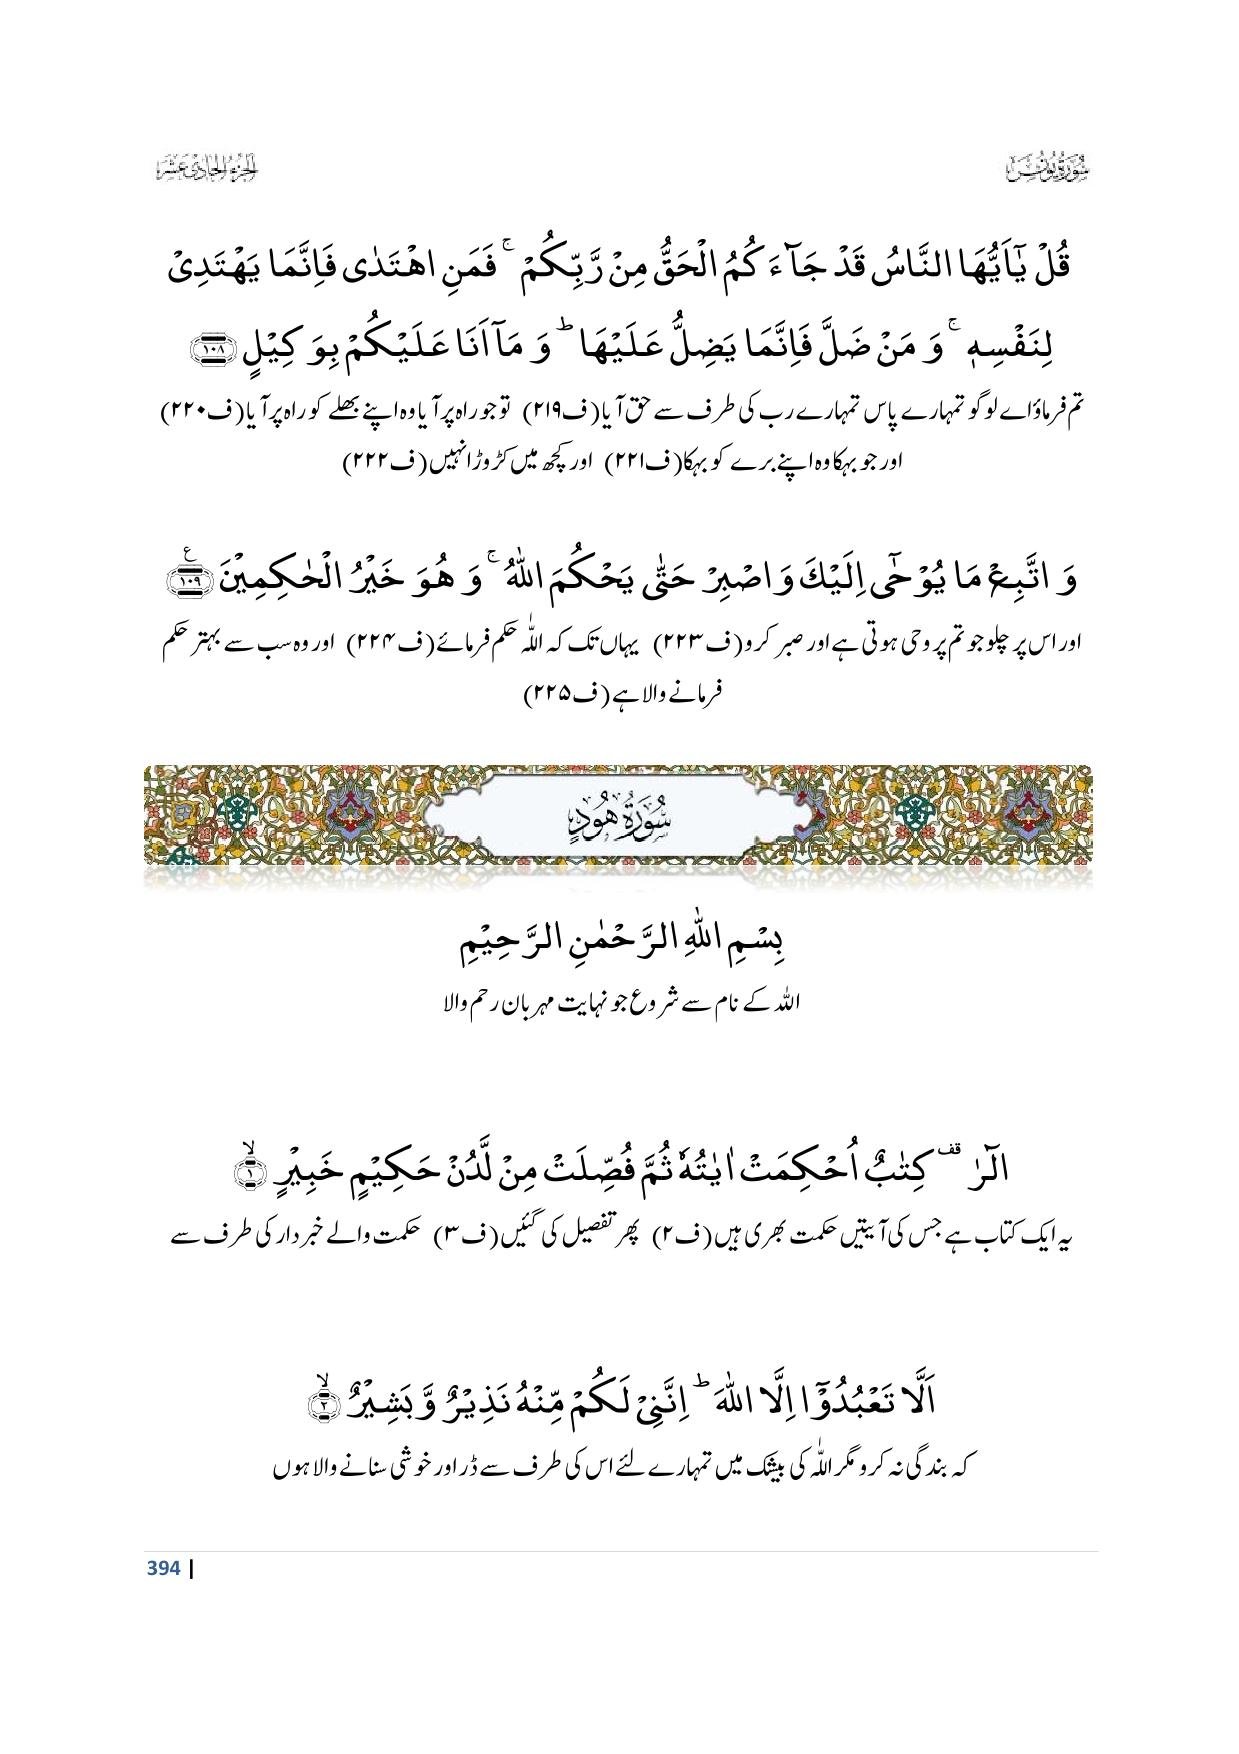 سُوۡرَةُ يُوۡنُس
الجزء الحادی عشر
قُلْ یٰۤاَیُّهَا النَّاسُ قَدْ جَآءَ كُمُ الْحَقُّ مِنْ رَّبِّكُمْ ۚ فَمَنِ اهْتَدٰی فَاِنَّمَا یَهْتَدِیْ
لِنَفْسِهٖ ۚ وَ مَنْ ضَلَّ فَاِنَّمَا یَضِلُّ عَلَیْهَا ؕ وَ مَاۤ اَنَا عَلَیْكُمْ بِوَ كِیْلٍ ﴿۱۰۸﴾
تم فرماؤ اے لوگو تمہارے پاس تمہارے رب کی طرف سے حق آیا (ف۲۱۹) تو جو راہ پر آیا وہ اپنے بھلے کو راہ پر آیا (ف۲۲۰)
اور جو بہکا وہ اپنے برے کو بہکا (ف۲۲۱) اور کچھ میں کڑوڑا نہیں (ف۲۲۲)
وَ اتَّبِعْ مَا یُوْحٰۤی اِلَیْكَ وَ اصْبِرْ حَتّٰی یَحْكُمَ اللّٰهُ ۚ وَ هُوَ خَیْرُ الْحٰكِمِیْنَ ﴿۱۰۹﴾ ع
اور اس پر چلو جو تم پر وحی ہوتی ہے اور صبر کرو (ف۲۲۳) یہاں تک کہ اللّٰہ حکم فرمائے (ف۲۲۴) اور وہ سب سے بہتر حکم
فرمانے والا ہے (ف۲۲۵)
سُوۡرَةُ هُوۡدٍ
بِسْمِ اللّٰهِ الرَّحْمٰنِ الرَّحِیْمِ
اللّٰہ کے نام سے شروع جو نہایت مہربان رحم والا
الٓرٰ ۟ كِتٰبٌ اُحْكِمَتْ اٰیٰتُهٗ ثُمَّ فُصِّلَتْ مِنْ لَّدُنْ حَكِیْمٍ خَبِیْرٍ ۙ﴿۱﴾
یہ ایک کتاب ہے جس کی آیتیں حکمت بھری ہیں (ف۲) پھر تفصیل کی گئیں (ف۳) حکمت والے خبردار کی طرف سے
اَلَّا تَعْبُدُوْۤا اِلَّا اللّٰهَ ؕ اِنَّنِیْ لَكُمْ مِّنْهُ نَذِیْرٌ وَّ بَشِیْرٌ ۙ﴿۲﴾
کہ بندگی نہ کرو مگر اللّٰہ کی بیشک میں تمہارے لئے اس کی طرف سے ڈر اور خوشی سنانے والا ہوں
394 |